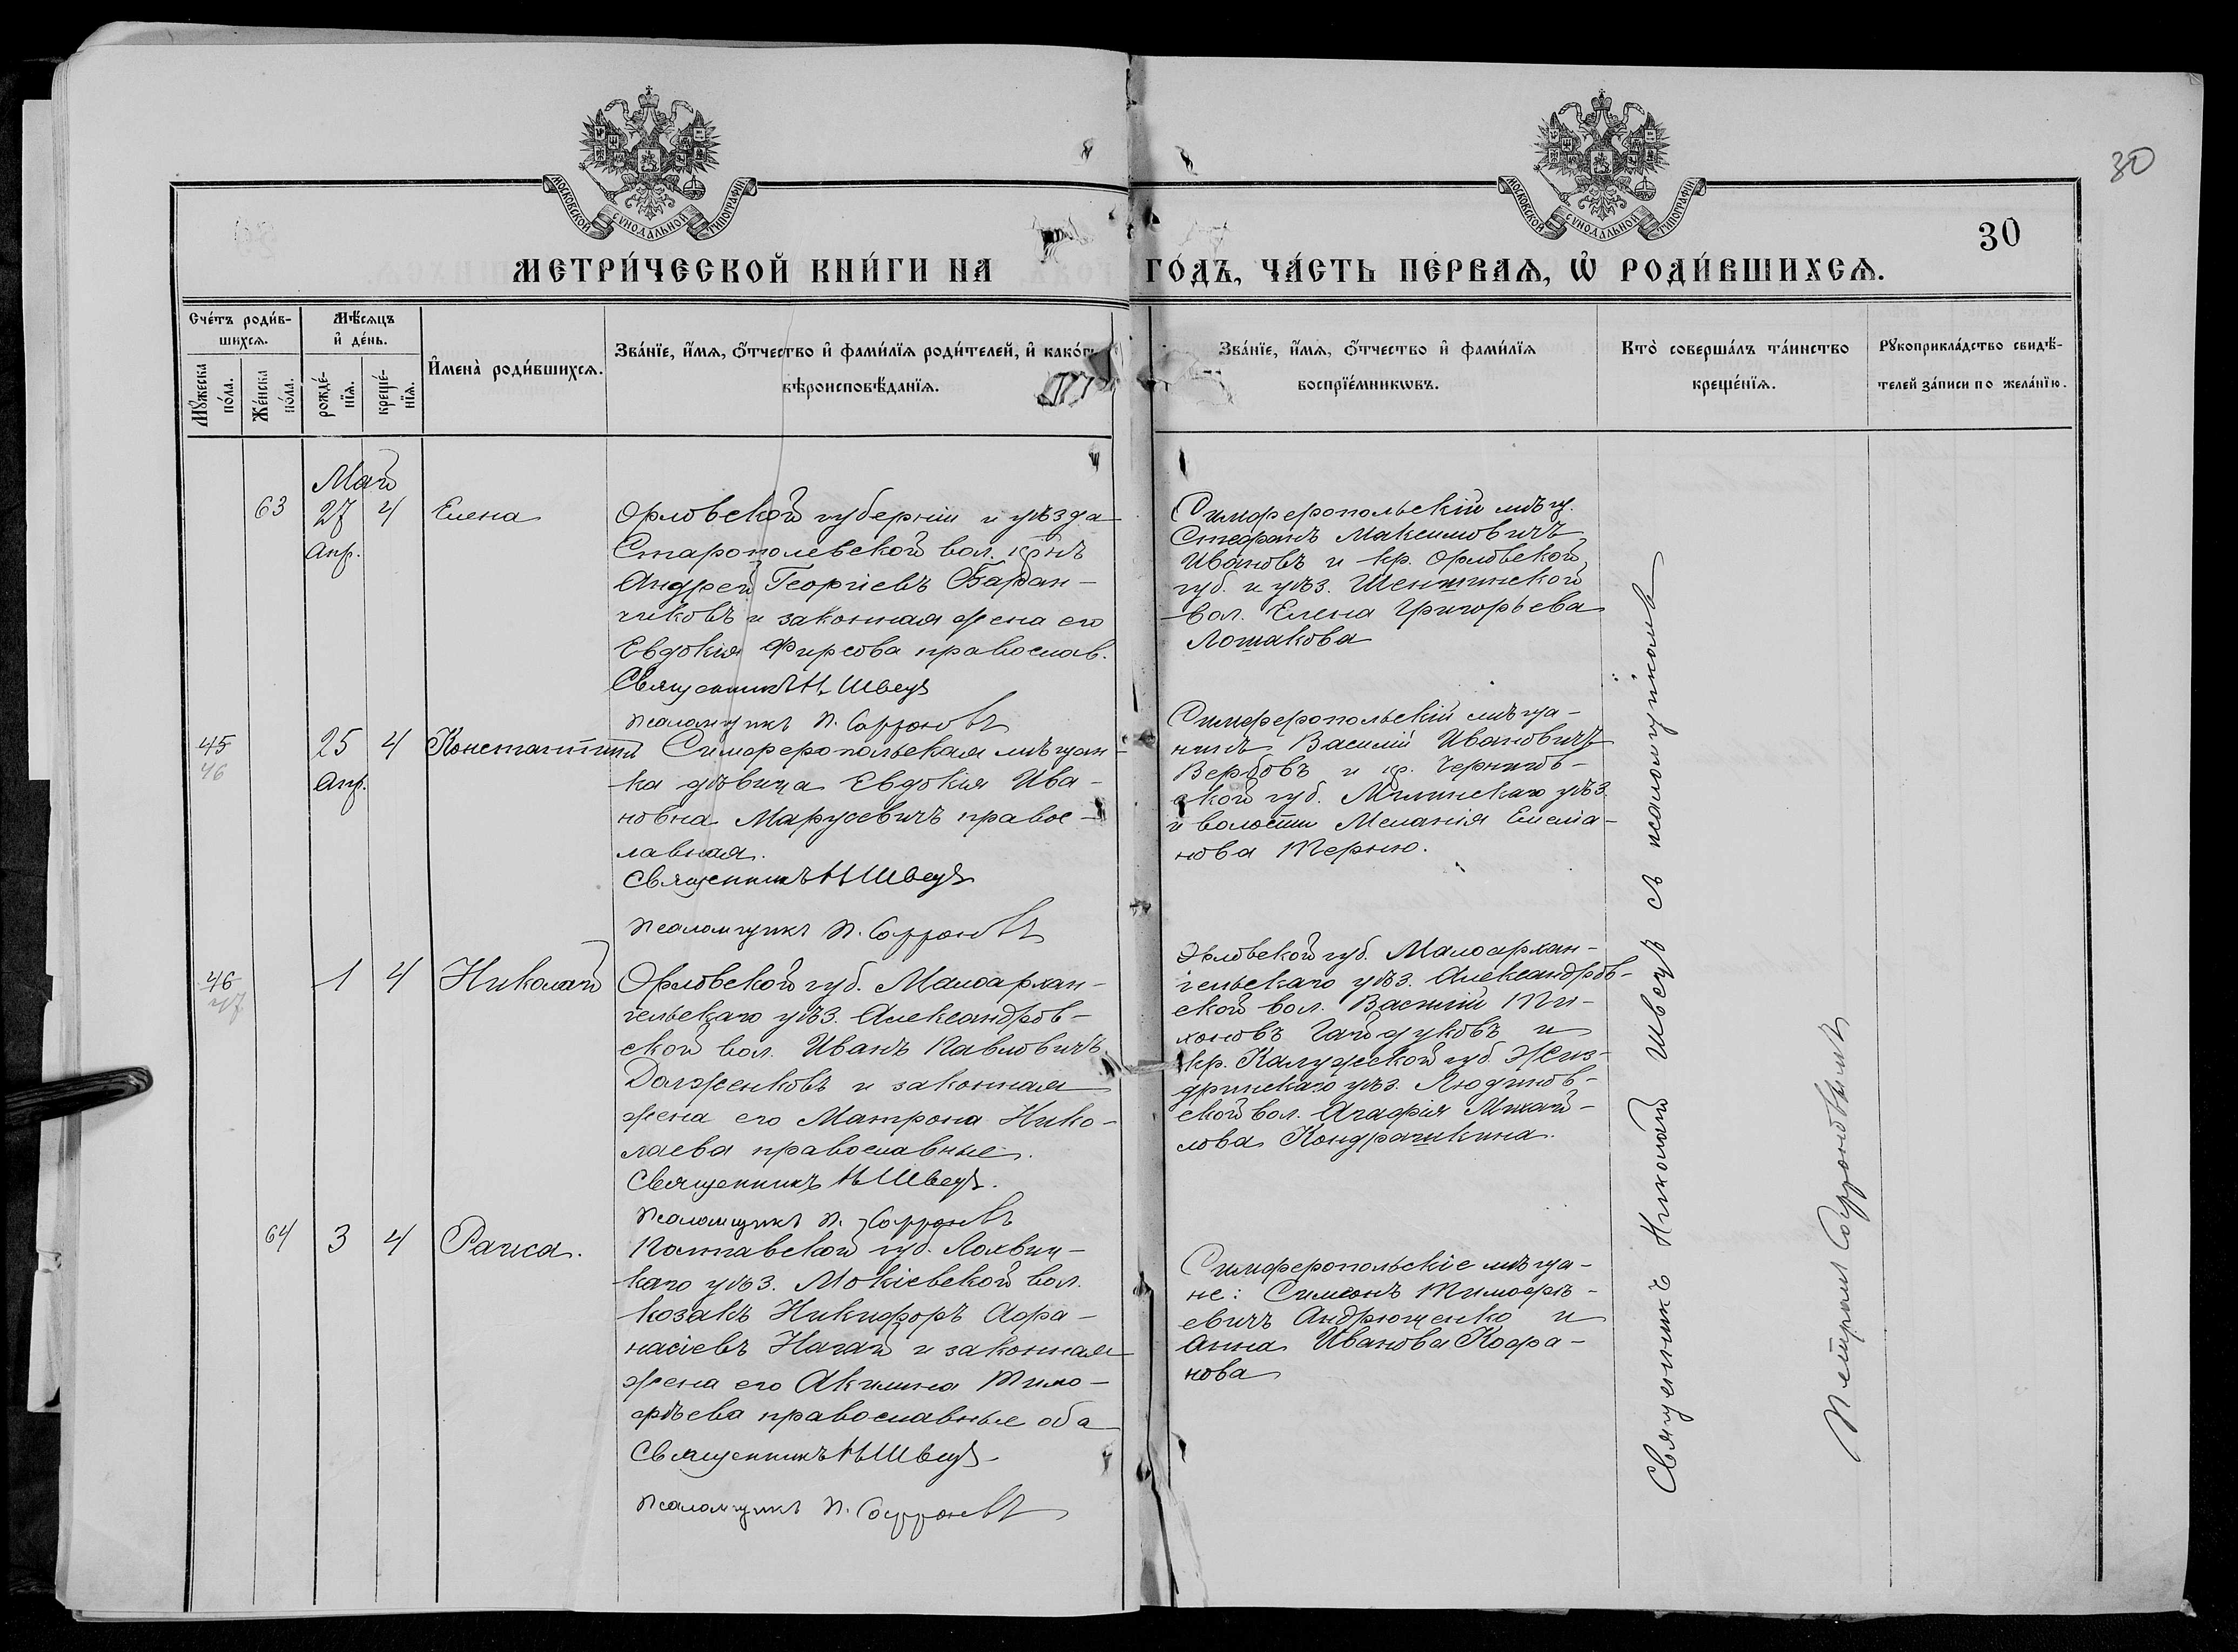 30
МОСКОВСКОЙ СѴНОДАЛЬНОЙ ТИПОГРАФІИ
МОСКОВСКОЙ СѴНОДАЛЬНОЙ ТИПОГРАФІИ
30
МЕТРИ́ЧЕСКОЙ КНИ́ГИ НА
ГО́ДЪ, ЧА́СТЬ ПЕ́РВАѦ, Ѡ҆ РОДИ́ВШИХСѦ.
Сче́тъ роди́в-
шихсѧ.
Мꙋ́жеска
по́ла.
Же́нска
по́ла.
Мѣ́сѧцъ
и҆ де́нь.
рожде́-
нїѧ.
креще́-
нїѧ.
И҆мена̀ роди́вшихсѧ.
Зва́нїе, и҆́мѧ, ѻ҆́тчество и҆ фами́лїѧ роди́телей, и҆ како́гѡ
вѣроисповѣ́данїѧ.
Зва́нїе, и҆́мѧ, ѻ҆́тчество и҆ фами́лїѧ
воспрїе́мникѡвъ.
Кто̀ соверша́лъ та́инство
креще́нїѧ.
Рꙋкоприкла́дство свидѣ́-
телей за́писи по жела́нїю.
Май
63
27
4
Апр.
Елена
Орловской губерніи и уѣзда
Старополевской вол. кр-нъ
Андрей Георгіевъ Баран-
чиковъ и законная жена его
Евдокія Фирсова православ.
Священникъ Н. Швецъ
псаломщикъ П. Софроновъ
Симферопольскій мѣщ.
Стефанъ Максимовичъ
Ивановъ и кр. Орловской
губ. и уѣз. Шеншинской
вол. Елена Григорьева
Лошакова
45
46
25
4
Апр.
Константинъ
Симферопольская мѣщан-
ка дѣвица Евдокія Ива-
новна Марусевичъ правос-
лавная.
Священникъ Н Швецъ
псаломщикъ П. Софроновъ
Симферопольскій мѣща-
нинъ Василій Ивановичъ
Вербовъ и кр. Чернигов-
ской губ. Мглинскаго уѣз.
и волости Меланія Емелія-
нова Терню.
46
47
1
4
Николай
Орловской губ. Малоархан-
гельскаго уѣз. Александров-
ской вол. Иванъ Павловичъ
Долженковъ и законная
жена его Матрона Нико-
лаева православные.
Священникъ Н Швецъ.
псаломщикъ П. Софроновъ
Орловской губ. Малоархан-
гельскаго уѣз. Александров-
ской вол. Василій Ти-
хоновъ Гайдуковъ и
кр. Калужской губ. Жиз-
дринскаго уѣз. Людинов-
ской вол. Агафія Михай-
лова Кондрашкина.
64
3
4
Раиса.
Полтавской губ. Лохвиц-
каго уѣз. Мокіевской вол.
козакъ Никифоръ Афа-
насіевъ Нагай и законная
жена его Акилина Тимо-
фѣева православные оба
Священникъ Н Швецъ
псаломщикъ П. Софроновъ
Симферопольскіе мѣща-
не: Симеонъ Тимофѣ-
евичъ Андрющенко и
Анна Иванова Кофа-
нова
Священникъ Николай Швецъ съ псаломщикомъ
Петромъ Софроновымъ